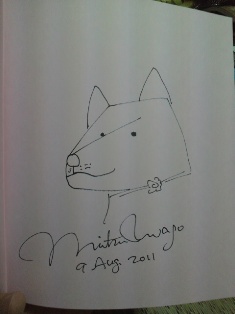 Mitsu Iwago
9 Aug. 2011